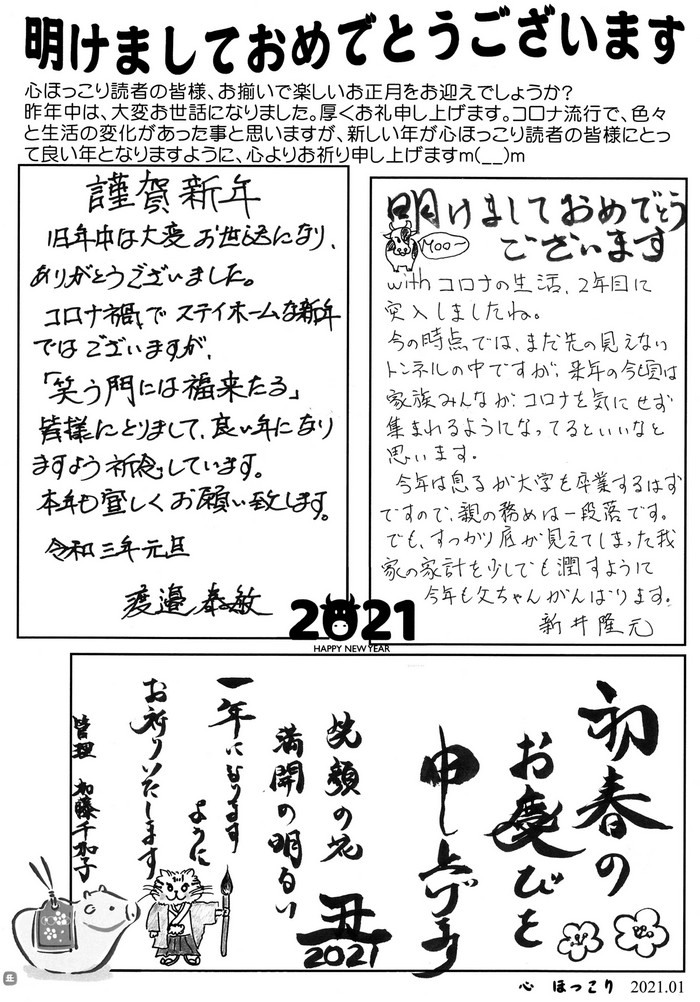 明けましておめでとうございます
心ほっこり読者の皆様、お揃いで楽しいお正月をお迎えでしょうか?
昨年中は、大変お世話になりました。厚くお礼申し上げます。コロナ流行で、色々
と生活の変化があった事と思いますが、新しい年が心ほっこり読者の皆様にとっ
て良い年となりますように、心よりお祈り申し上げますm(__)m
謹賀新年
旧年中は大変お世話になり、
ありがとうございました。
コロナ禍で ステイホームな新年
ではございますが、
「笑う門には福来たる」
皆様にとりまして、良い年になり
ますよう祈念しています。
本年も宜しくお願い致します。
令和三年元旦
渡邉泰敏
明けましておめでとう
ございます
Moo〜
withコロナの生活、2年目に
突入しましたね。
今の時点では、まだ先の見えない
トンネルの中ですが、来年の今頃は
家族みんなが、コロナを気にせず
集まれるようになってるといいなと
思います。
今年は息子が大学を卒業するはず
ですので、親の務めは一段落です。
でも、すっかり底が見えてしまった我
家の家計を少しでも潤すように
今年も父ちゃんがんばります。
新井隆元
2021
HAPPY NEW YEAR
初春の
お慶びを
申し上げます
丑
2021
笑顔の花
満開の明るい
一年になります
ように
お祈りいたします
管理 加藤千加子
丘
心 ほっこり 2021.01